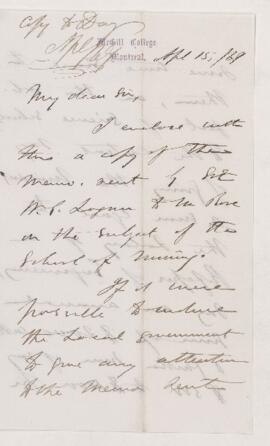 Copy to Day
McGill College
Montreal, Apl 15, /69
My dear Sir,
I enclose with
this a copy of the
Memo. sent by Sir
W. E. Logan to Mr Rose
on the subject of the
School of Mining.
If it were
possible to induce
the Local government
to give any attention
to the Memo sent